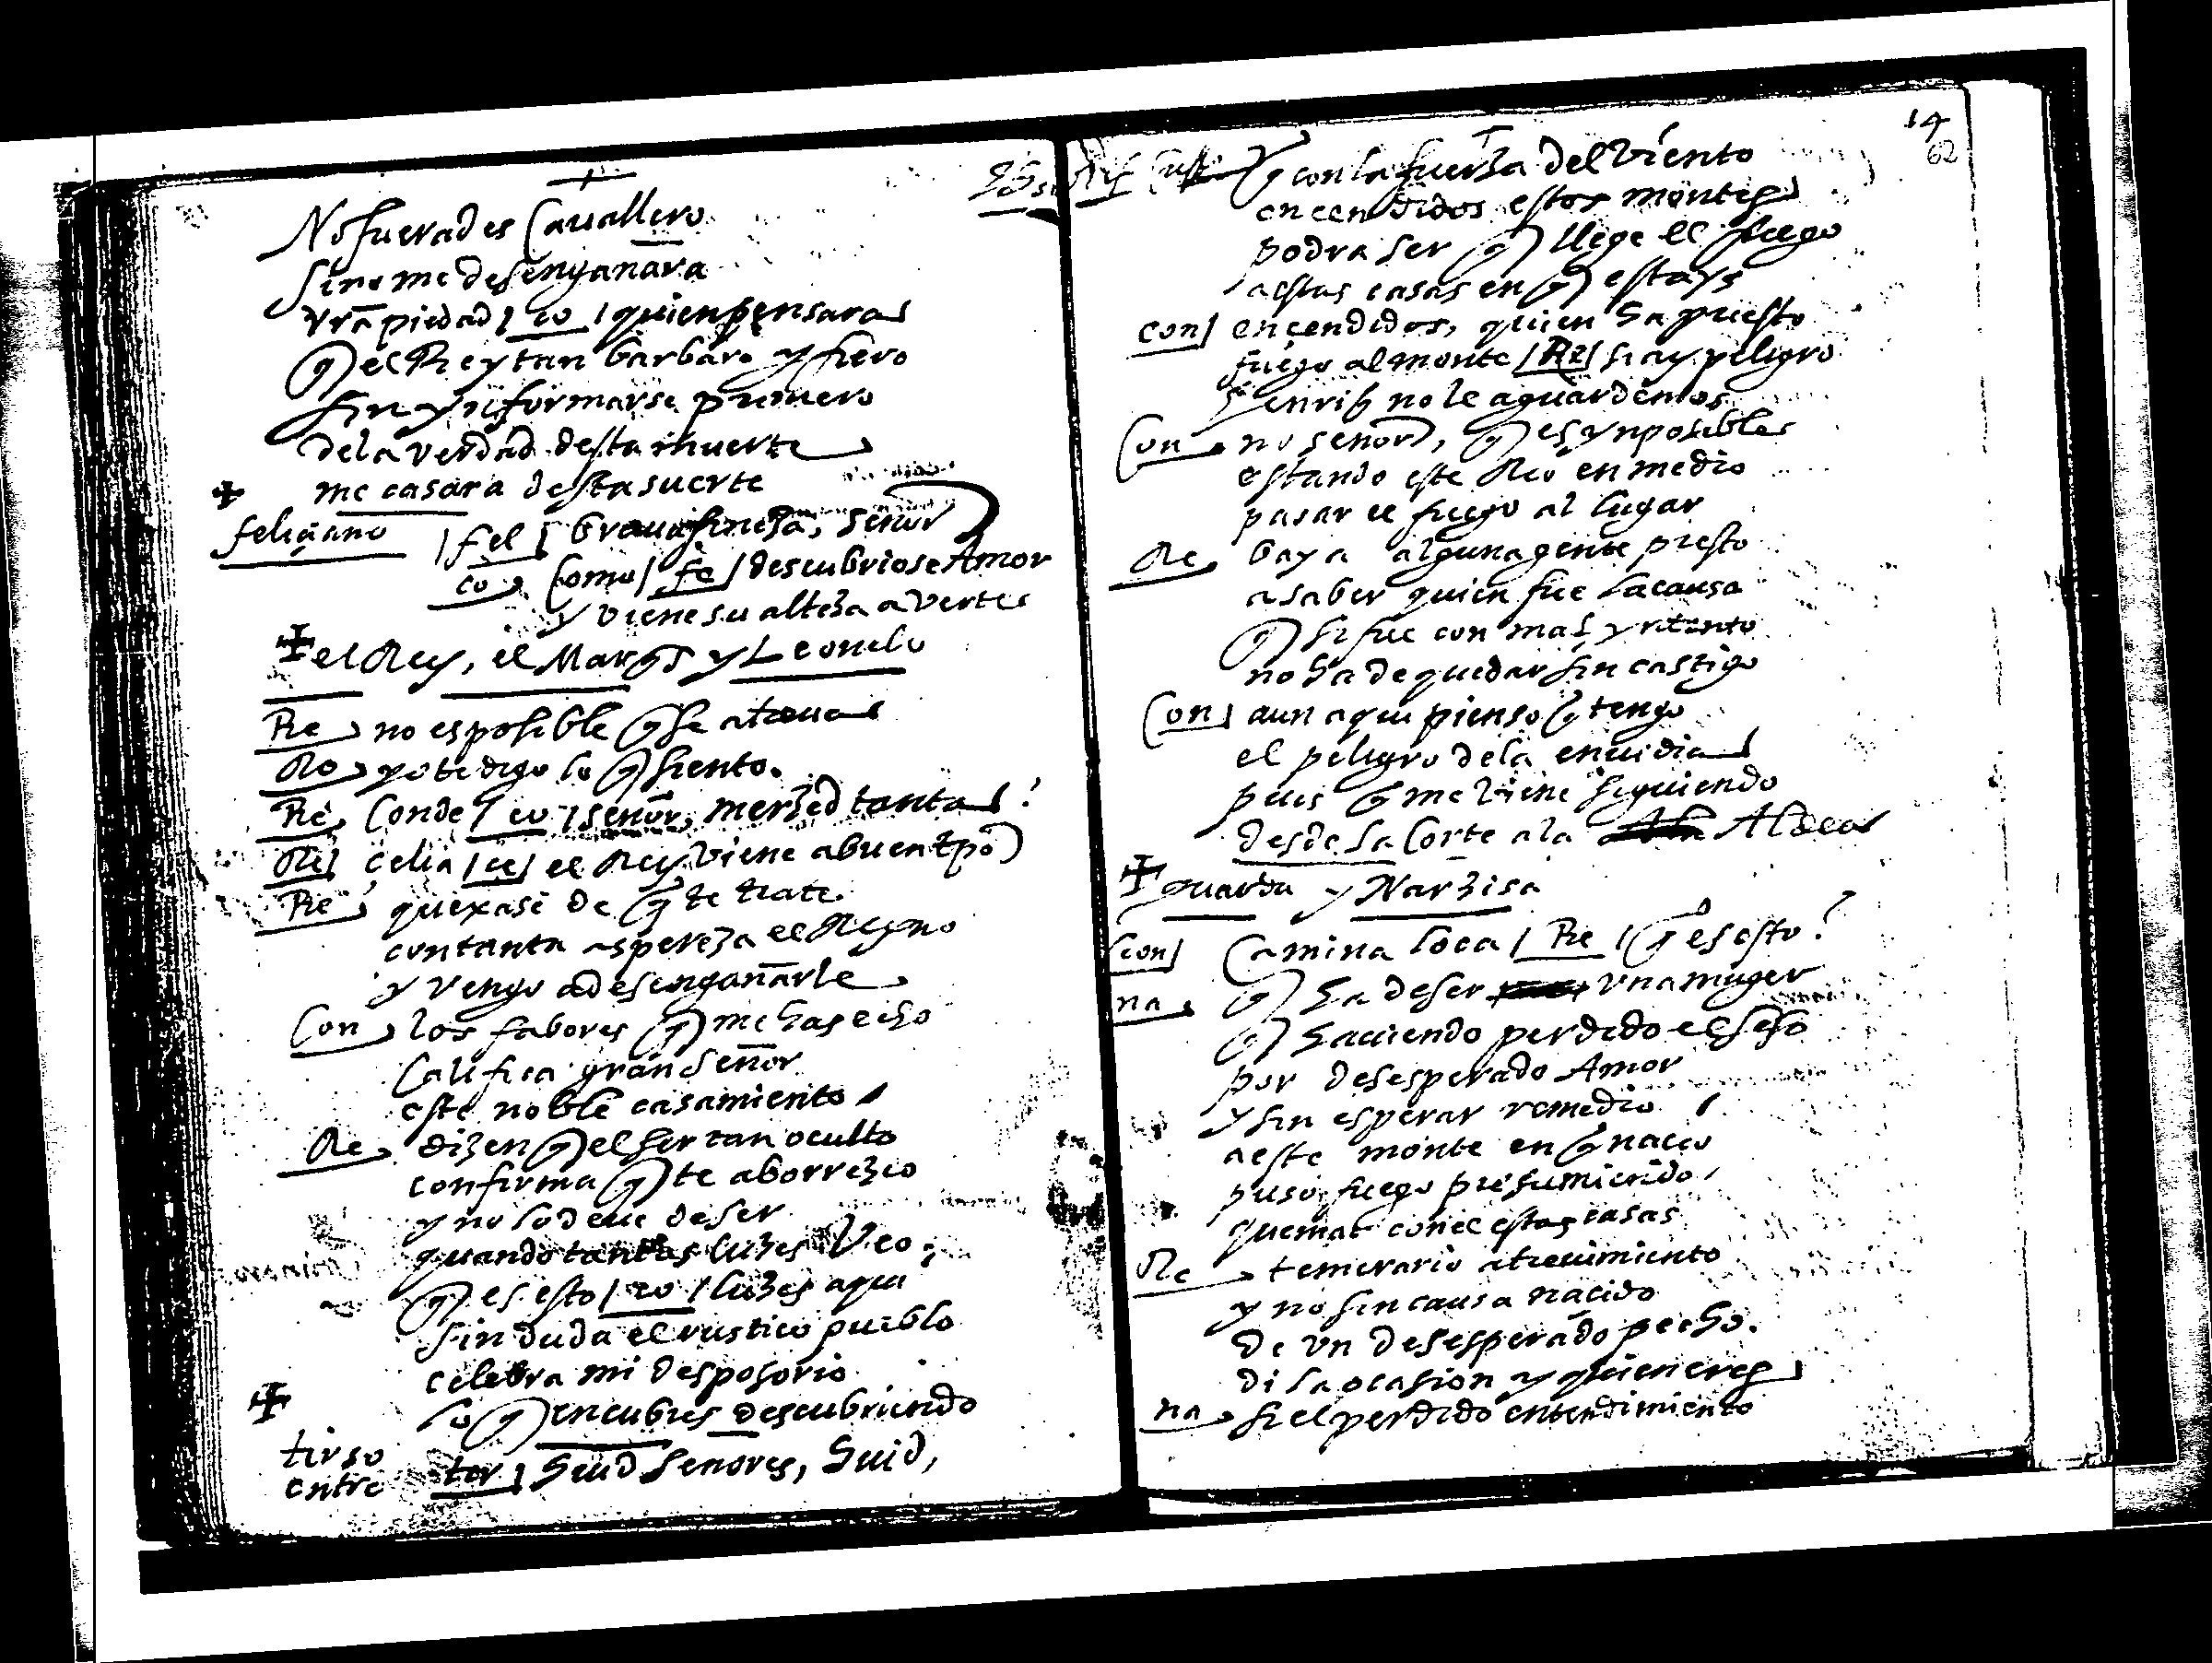 No fuerades Cavallero
sino me desengañara
vrā piedad / co / quien pensara
q el Rey tan barbaro y fiero
sin ynformarse primero
de la verdad desta muerte
me casara desta suerte
feliçiano / fel / braua fineza, señor
co Como / fe / descubriose Amor
y viene su alteza a verte
el Rey, el Marqs y Leonelo
Re no es posible q se atreua
Ro yo te digo lo q siento.
Re Conde / co / señor, merzed tanta?
Re Çelia / ce / el Rey viene a buen tpō
Re quexase de q te trate
con tanta aspereza el Reyno
y vengo a desengañarle
Con los fabores q me has echo
Califica gran Señor
este noble casamiento
Re dizen q el ser tan oculto
confirma q te aborrezco
y no lo deue de ser
quando tantas luzes Veo;
q es esto / co / luzes aqui
sin duda el rustico pueblo
celebra mi desposorio
lo q encubres descubriendo
tirso
entre tir / Huid Señores, Huid,
14
62
q con la fuerza del viento
encendidos estos montes
podra ser q llege el fuego
a estas casas en q estays
con ençendidos, quien ha puesto
fuego al monte / Re / si ay peligro
Henriq no le aguardemos
Con no señor, q es ynposible
estando este Rio en medio
pasar el fuego al lugar
Re baya alguna gente presto
a saber quien fue la causa
q si fue con mal yntento
no ha de quedar sin castigo
Con aun aqui pienso q tengo
el peligro de la enuidia
pues q me viene siguiendo
desde la Corte a la Aldea
guarda y Narzisa
con Camina loca / Re / q es esto?
na q ha de ser vna muger
q haviendo perdido el seso
por desesperado Amor
y sin esperar remedio
a este monte en q nacio
puso fuego presumiendo
quemar con el estas casas
Re temerario atreuimiento
y no sin causa nacido
de vn desesperado pecho.
di la ocasion y quien eres
na si el perdido entendimiento